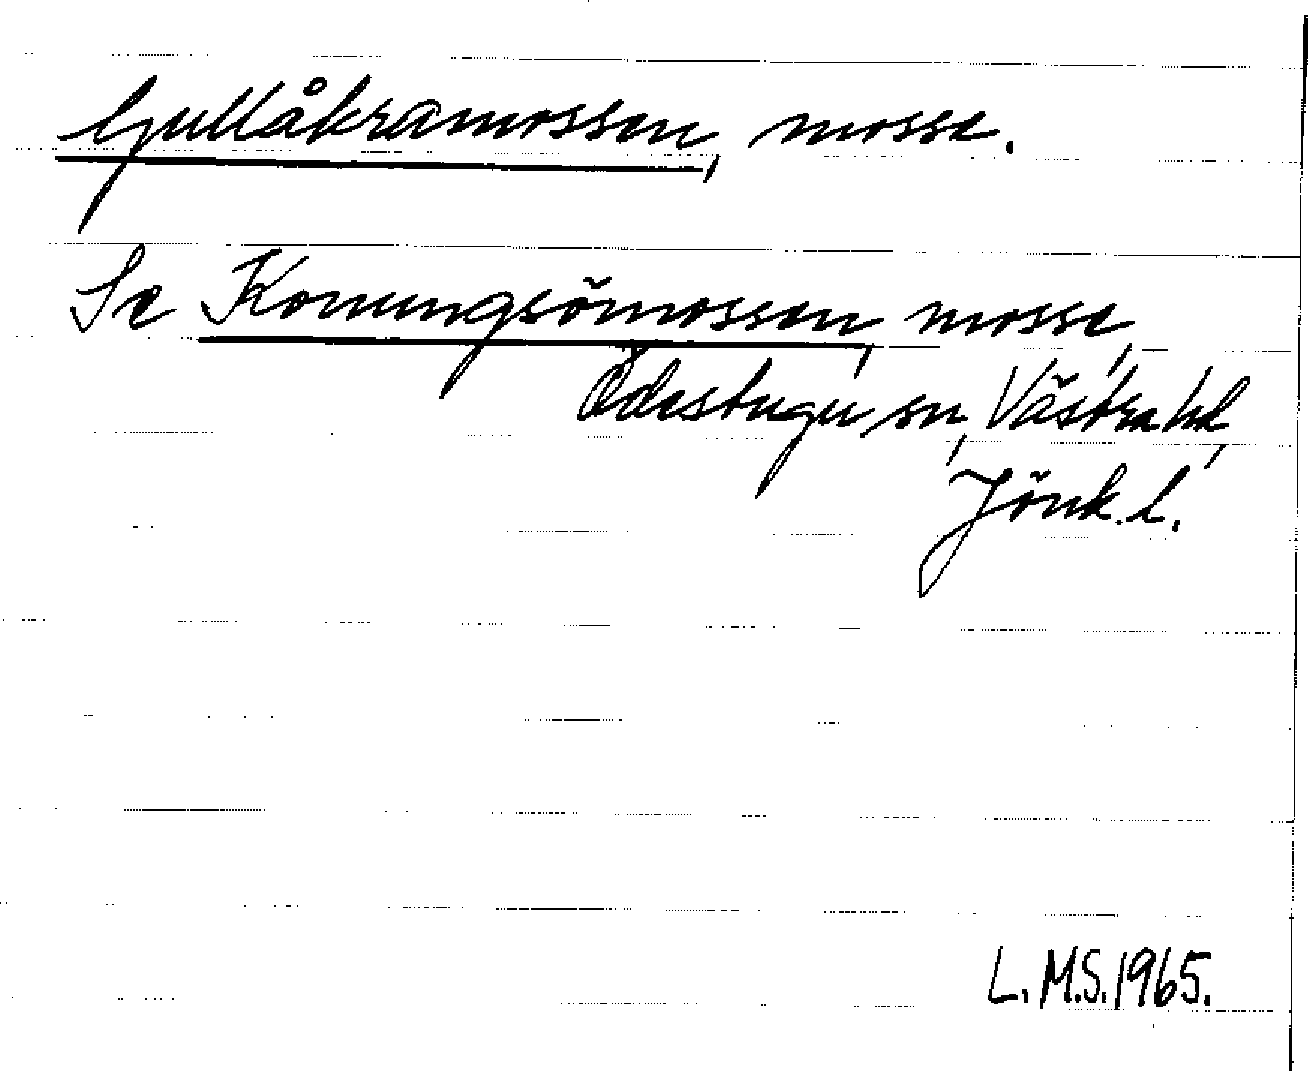 Gullåkramossen, mosse.
Se Konungsömossen, mosse,
Ödestugu sn, Västra hd,
Jönk. l.
L.M.S. 1965.